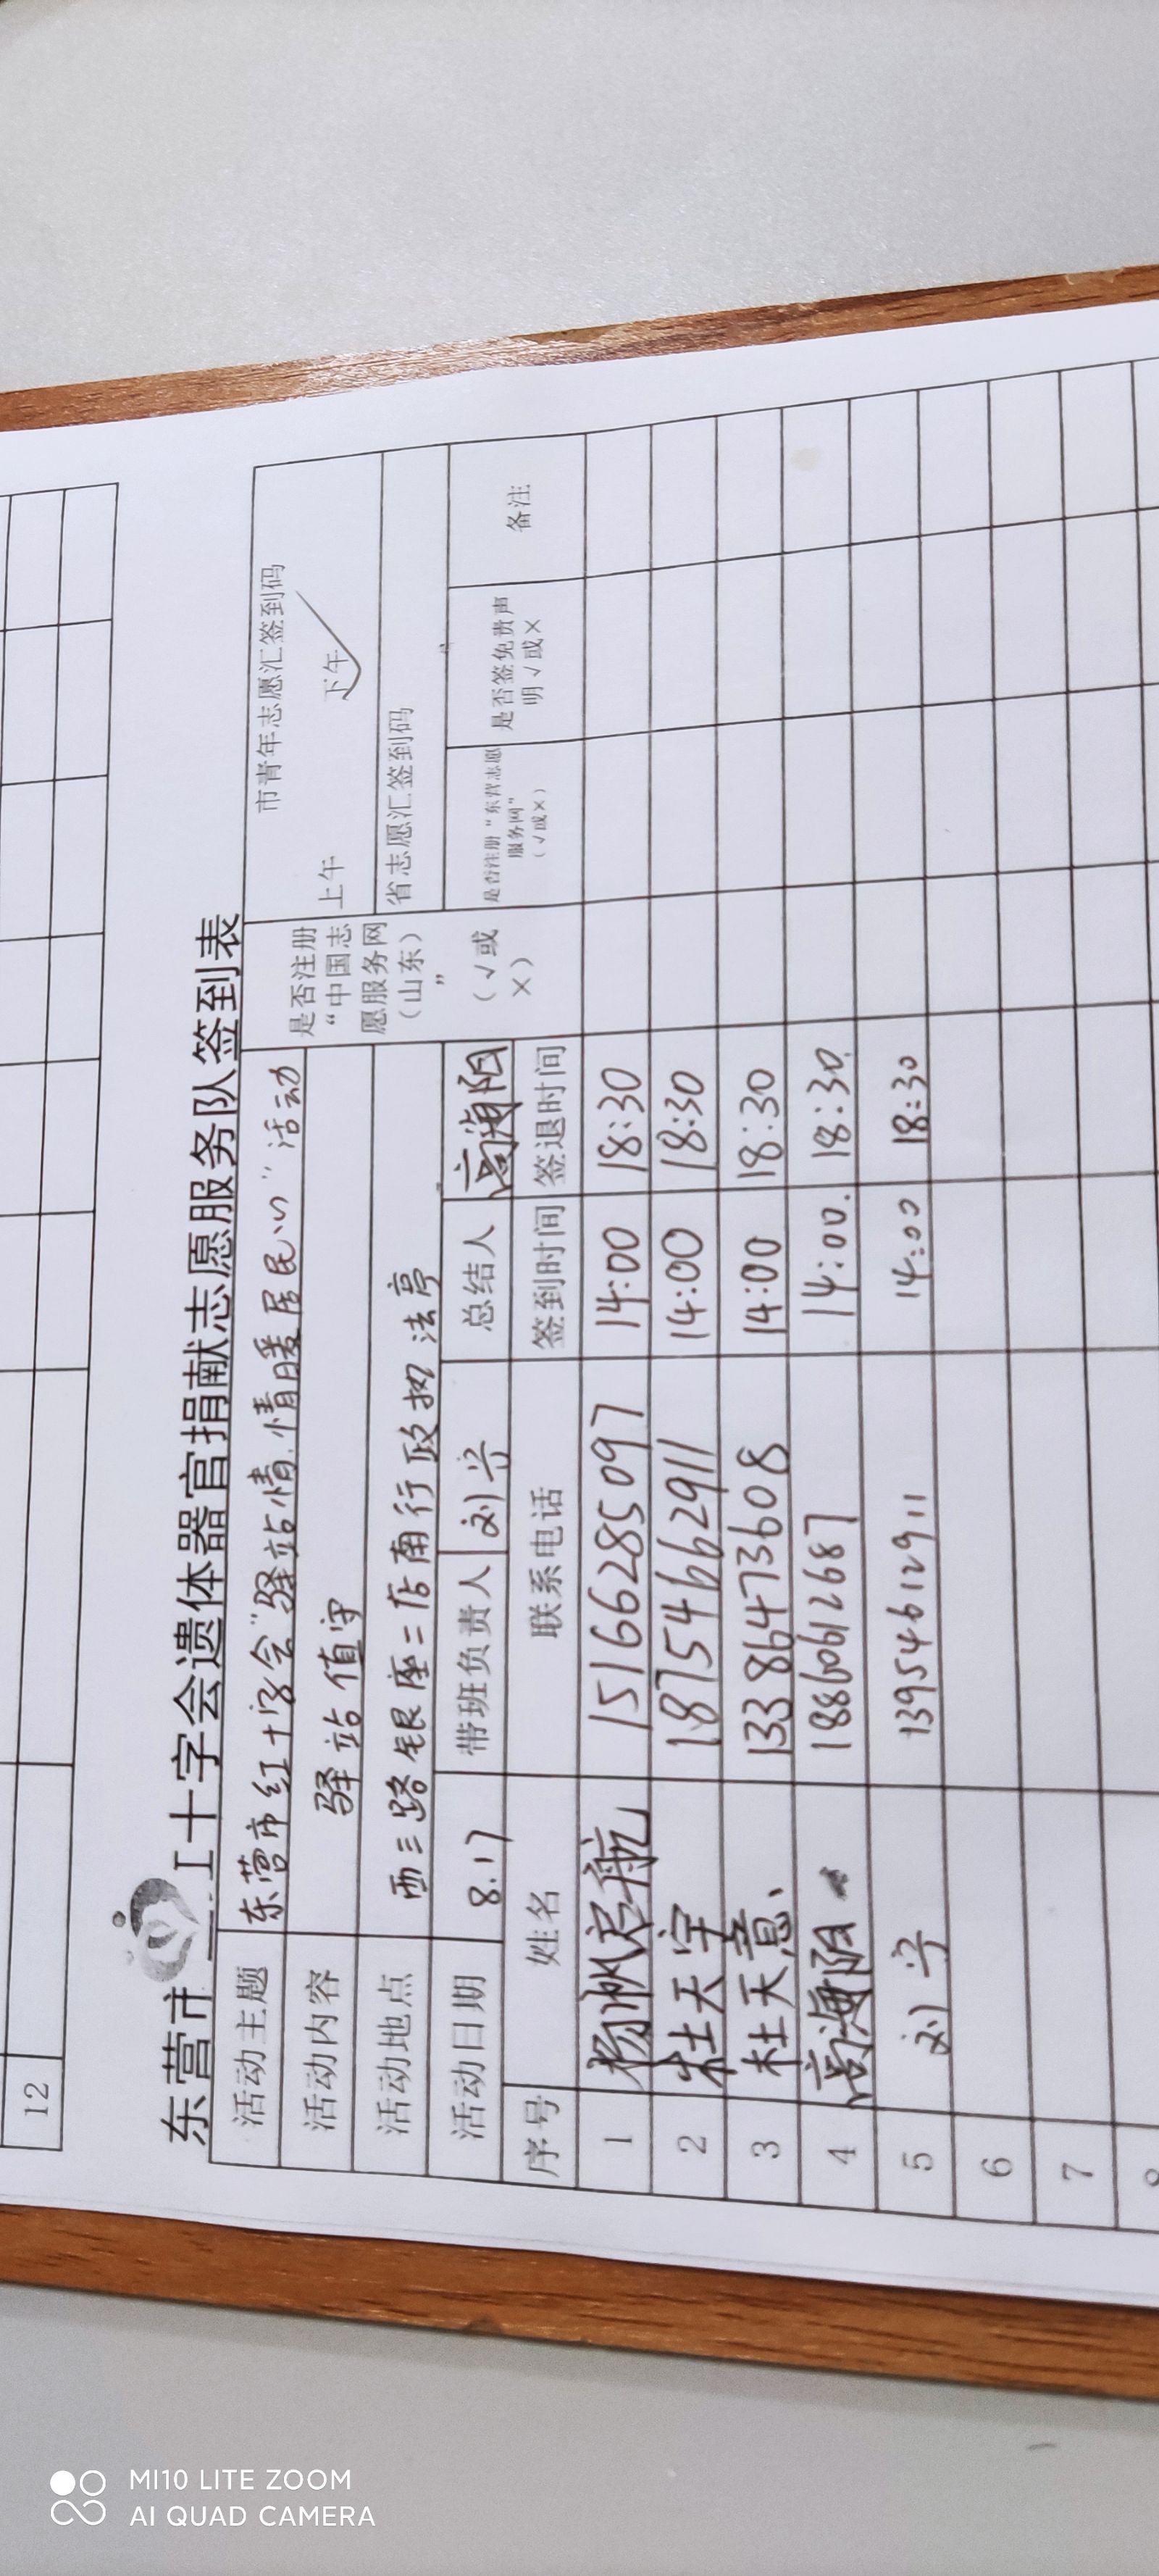 12
东营市红十字会遗体器官捐献志愿服务队签到表
活动主题 东营市红十字会“驿站情.情暖居民心”活动 是否注册“中国志愿服务网（山东）” （√或×） 市青年志愿汇签到码
上午 下午 √
活动内容 驿站值守
活动地点 西三路银座二店南行政执法亭 省志愿汇签到码
活动日期 8.17 带班负责人 总结人 高海阳 是否注册“东营志愿服务网”（√或×） 是否签免责声明√或× 备注
序号 姓名 联系电话 签到时间 签退时间
1 杨帆启航 15166285097 14:00 18:30
2 杜天宇 18754662911 14:00 18:30
3 杜天意、 13386473608 14:00 18:30
4 高海阳 18606612687 14:00. 18:30.
5 刘 13954612911 14:00 18:30
6
7
MI10 LITE ZOOM
AI QUAD CAMERA